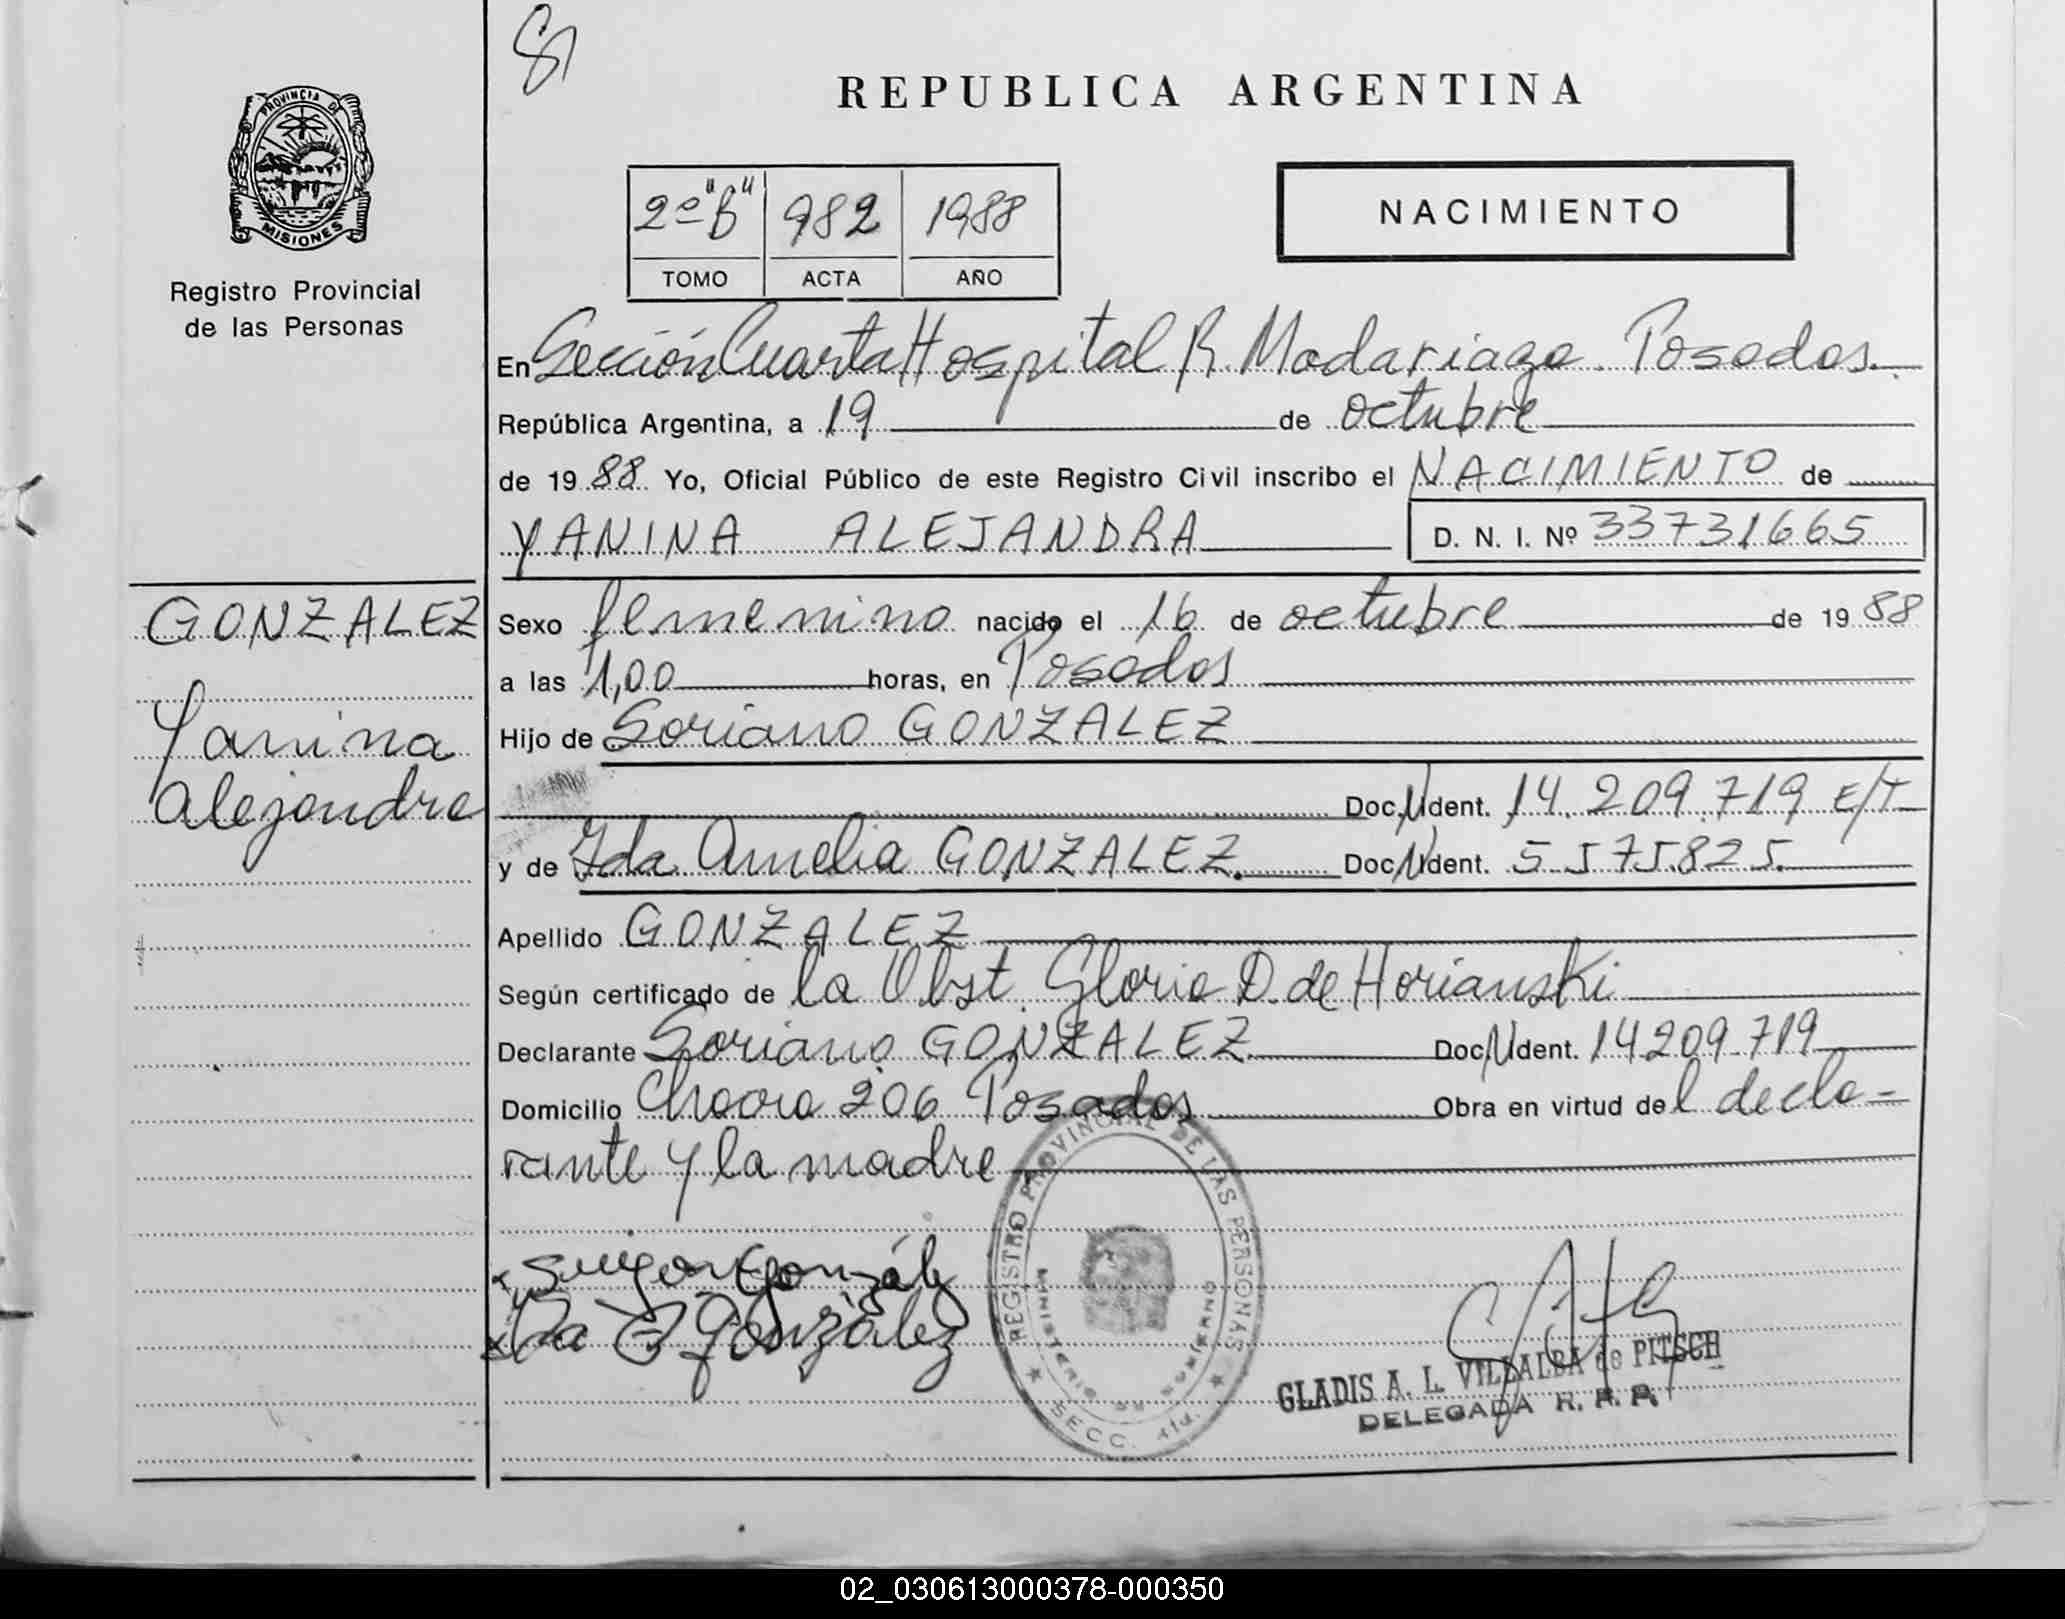 81
REPUBLICA ARGENTINA
PROVINCIA DE
MISIONES
Registro Provincial
de las Personas
2º "B" 982 1988
TOMO ACTA AÑO
NACIMIENTO
En Sección Cuarta Hospital R. Madariaga. Posadas.
República Argentina, a 19 de octubre
de 1988 Yo, Oficial Público de este Registro Civil inscribo el NACIMIENTO de
YANINA ALEJANDRA D. N. I. Nº 33731665
GONZALEZ
Yanina
Alejandra
Sexo femenino nacido el 16 de octubre de 1988
a las 1,00 horas, en Posadas
Hijo de Soriano GONZALEZ
Doc. Ident. 14.209.719 E/T
y de Ida Amelia GONZALEZ. Doc. Ident. 5.575.825.
Apellido GONZALEZ
Según certificado de la Obst. Gloria D. de Horianski
Declarante Soriano GONZALEZ Doc. Ident. 14209.719
Domicilio 206 Posadas Obra en virtud del decla-
rante y la madre
González
Ida González
REGISTRO PROVINCIAL DE LAS PERSONAS
MINISTERIO DE GOBIERNO
SECC. 4ta.
GLADIS A. L. VILLALBA de PITSCH
DELEGADA R. P. P.
02_030613000378-000350